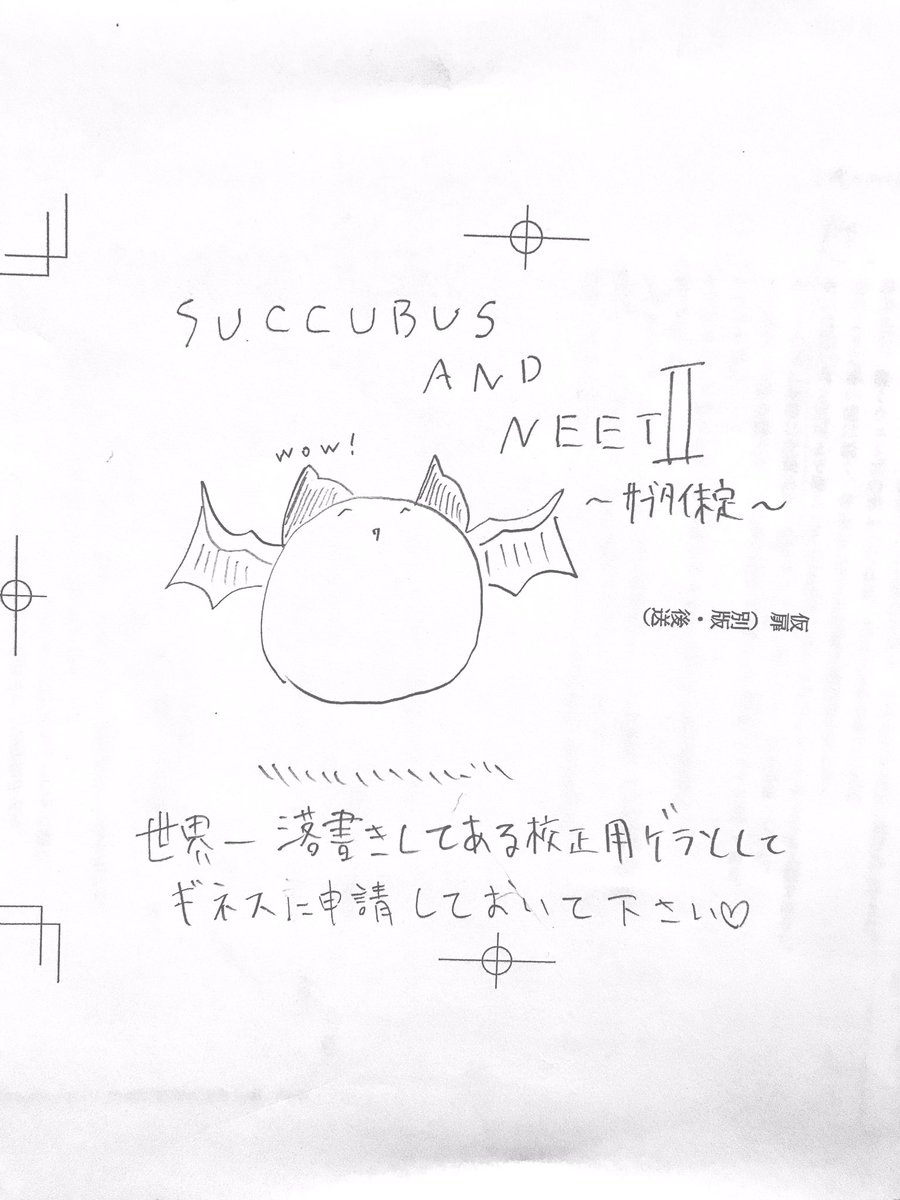 SUCCUBUS
AND
NEET II
wow!
〜サブタイ未定〜
仮扉(別版・後送)
世界一落書きしてある校正用ゲラとして
ギネスに申請しておいて下さい♡